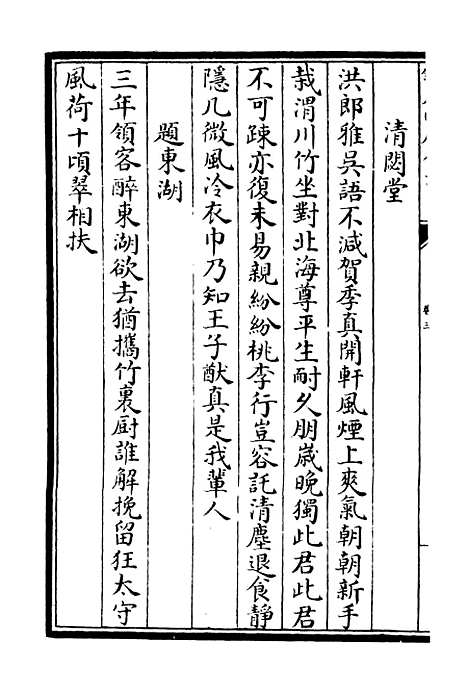 清閟堂
洪郎雅吳語不減賀季真開軒風煙上爽氣朝朝新手
栽渭川竹坐對北海尊平生耐久朋嵗晚獨此君此君
不可疎亦復未易親紛紛桃李行豈容託清塵退食静
隱几微風冷衣巾乃知王子猷真是我輩人
題東湖
三年領客醉東湖欲去猶攜竹裏厨誰解挽留狂太守
風荷十頃翠相扶
卷三